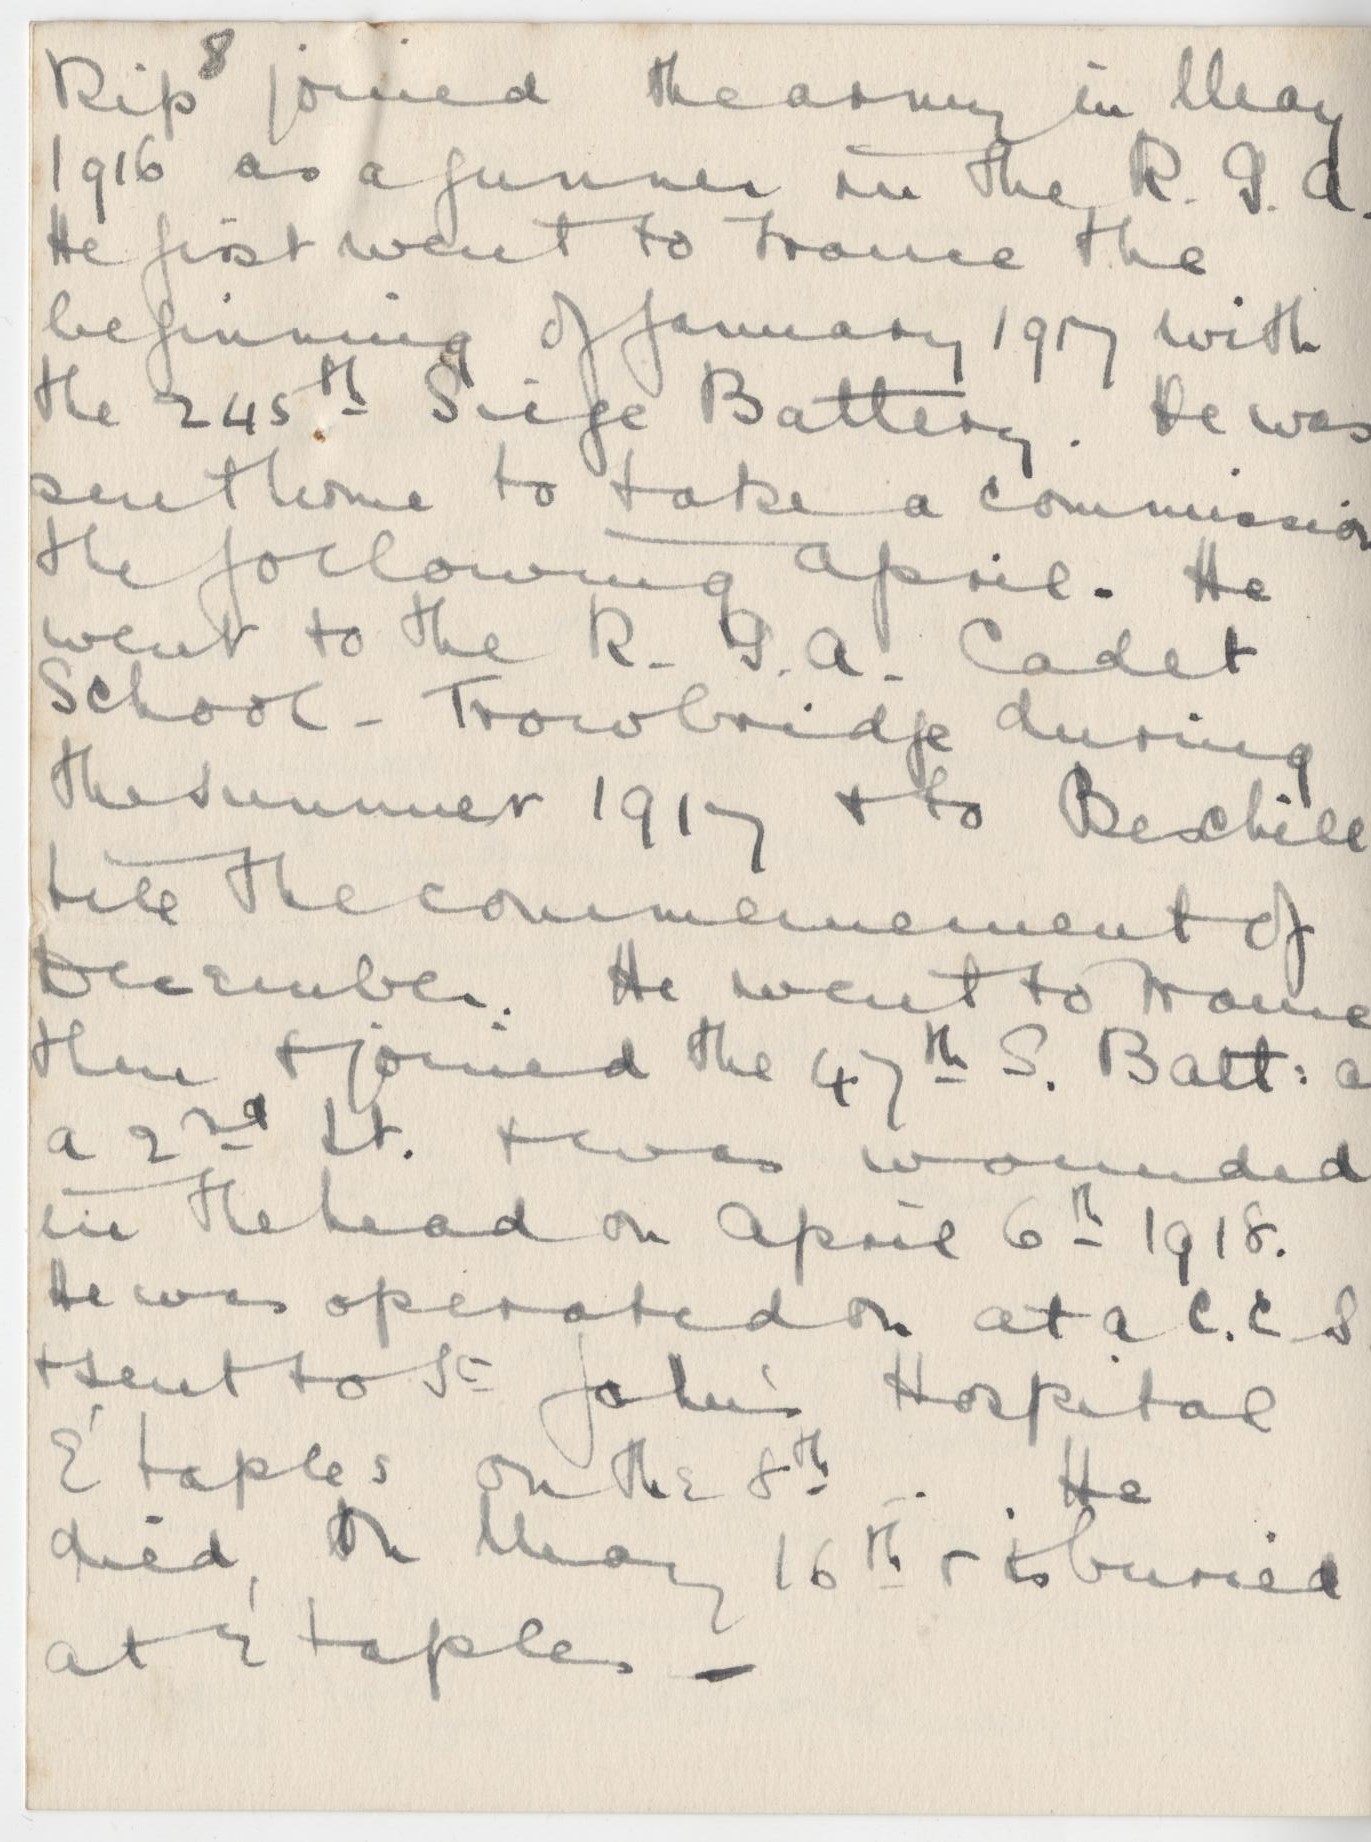 8
Rip joined the army in May
1916 as a gunner in the R. G. A.
He first went to France the
beginning of January 1917 with
the 245th Siege Battery. He was
sent home to take a commission
the following April. He
went to the R. G. A. Cadet
School - Trowbridge during
the summer 1917 & to Bexhill
till the commencement of
December. He went to France
then & joined the 47th S. Batt: a
a 2nd Lt. & was wounded
in the head on April 6th 1918.
He was operated on at a C. C. S.
& sent to St John's Hospital
É'taples on the 8th . . He
died, on May 16th & is buried
at É'taples —